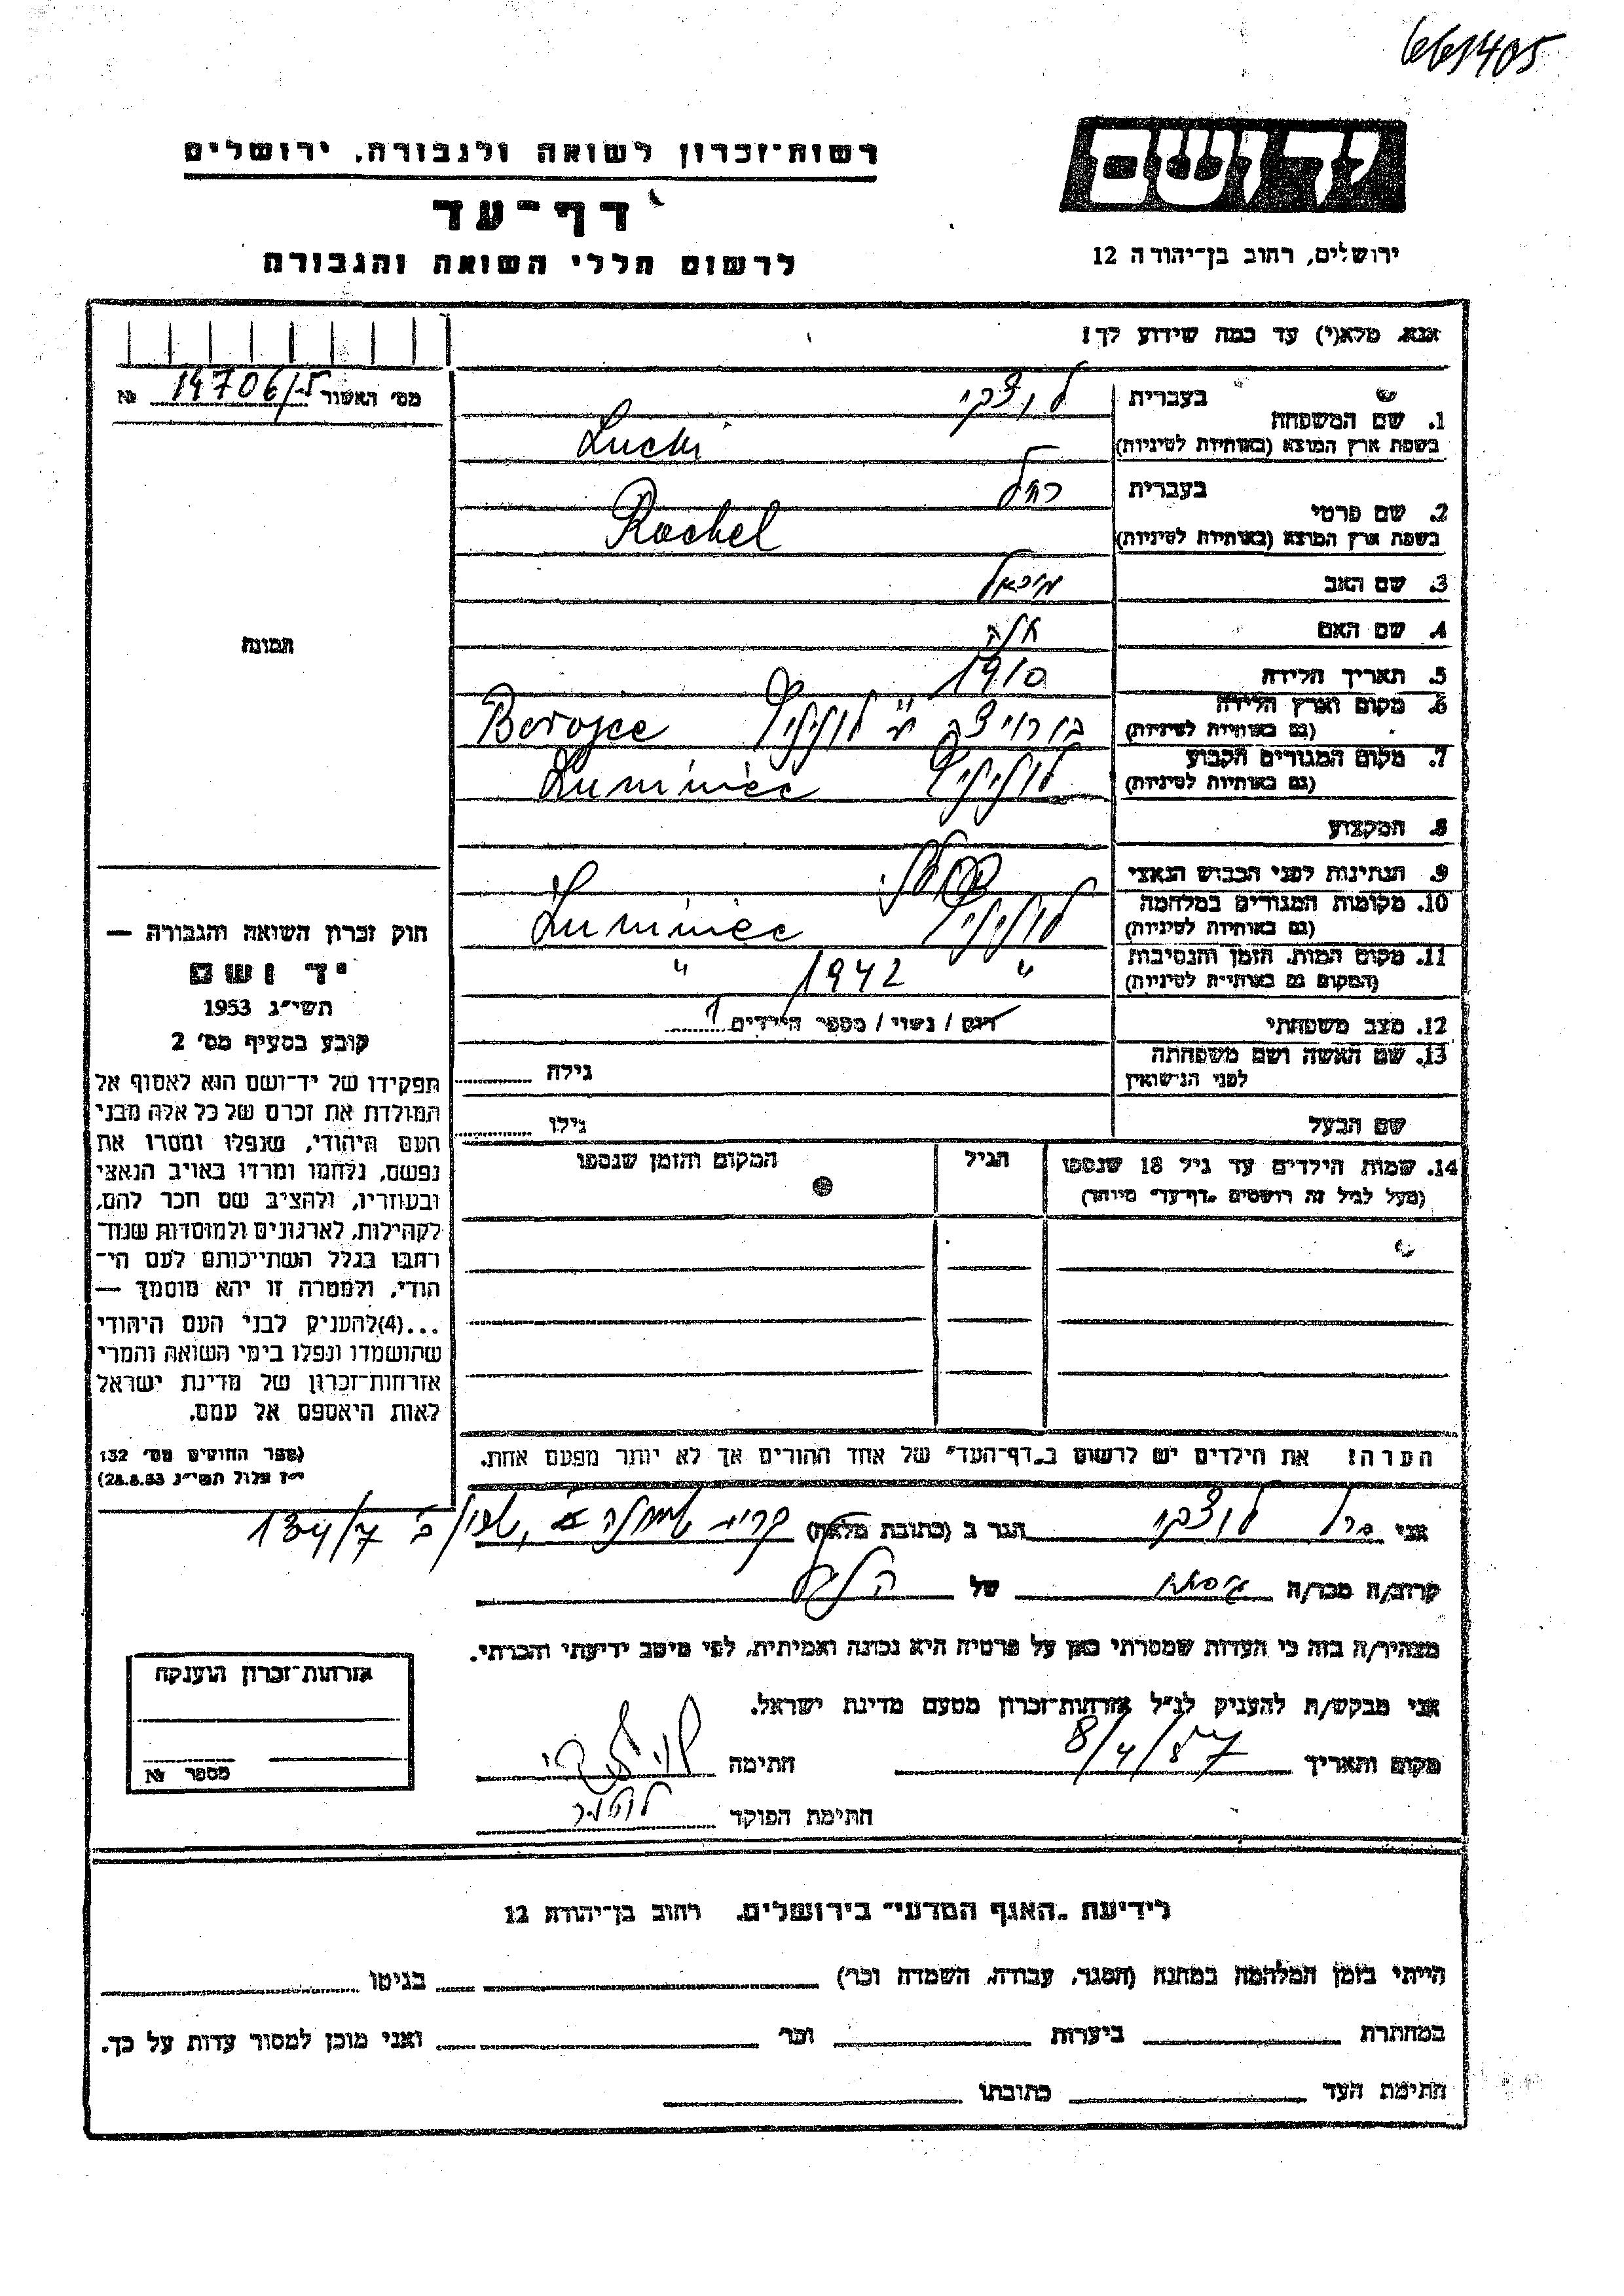 661405
יד ושם
ירושלים, רחוב בן־יהודה 12
רשות־זכרון לשואה ולגבורה, ירושלים
דף־עד
לרשום חללי השואה והגבורה
אנא, מלא(י) עד כמה שידוע לך!
מס׳ האשור 14706/5 №
1. שם המשפחה
בעברית
בשפת ארץ המוצא (באותיות לטיניות)
2. שם פרטי
בעברית רחל
בשפת ארץ המוצא (באותיות לטיניות) Rachel
3. שם האב מיכאל
4. שם האם
5. תאריך הלידה 1910
6. מקום וארץ הלידה
(גם באותיות לטיניות)
7. מקום המגורים הקבוע
(גם באותיות לטיניות)
8. המקצוע
9. הנתינות לפני הכבוש הנאצי
10. מקומות המגורים במלחמה
(גם באותיות לטיניות)
11. מקום המות, הזמן והנסיבות " 1942 "
(המקום גם באותיות לטיניות)
12. מצב משפחתי רווק / נשוי / מספר הילדים 1
13. שם האשה ושם משפחתה
לפני הנישואין
גילה
שם הבעל גילו
14. שמות הילדים עד גיל 18 שנספו
(מעל לגיל זה רושמים „דף־עד״ מיוחד)
הגיל
המקום והזמן שנספו
הערה! את הילדים יש לרשום ב„דף־העד״ של אחד ההורים אך לא יותר מפעם אחת.
תמונה
חוק זכרון השואה והגבורה —
יד ושם
תשי״ג 1953
קובע בסעיף מס׳ 2
תפקידו של יד־ושם הוא לאסוף אל
המולדת את זכרם של כל אלה מבני
העם היהודי, שנפלו ומסרו את
נפשם, נלחמו ומרדו באויב הנאצי
ובעוזריו, ולהציב שם וזכר להם,
לקהילות, לארגונים ולמוסדות שנח־
רבו בגלל השתייכותם לעם הי־
הודי, ולמטרה זו יהא מוסמך —
...(4)להעניק לבני העם היהודי
שהושמדו ונפלו בימי השואה והמרי
אזרחות־זכרון של מדינת ישראל
לאות היאספם אל עמם.
(ספר החוקים מס׳ 132
י״ז אלול תשי״ג 28.8.53)
אני הגר ב (כתובת מלאה) 134/7
קרוב/ה מכר/ה של
מצהיר/ה בזה כי העדות שמסרתי כאן על פרטיה היא נכונה ואמיתית, לפי מיטב ידיעתי והכרתי.
אני מבקש/ת להעניק לנ״ל אזרחות־זכרון מטעם מדינת ישראל.
מקום ותאריך 8/4/57 חתימה
חתימת הפוקד
אזרחות־זכרון הוענקה
מספר №
לידיעת „האגף המדעי״ בירושלים, רחוב בן־יהודה 12
הייתי בזמן המלחמה במחנה (הסגר, עבודה, השמדה וכו׳) בגיטו
במחתרת ביערות וכו׳ ואני מוכן למסור עדות על כך.
חתימת העד כתובתו